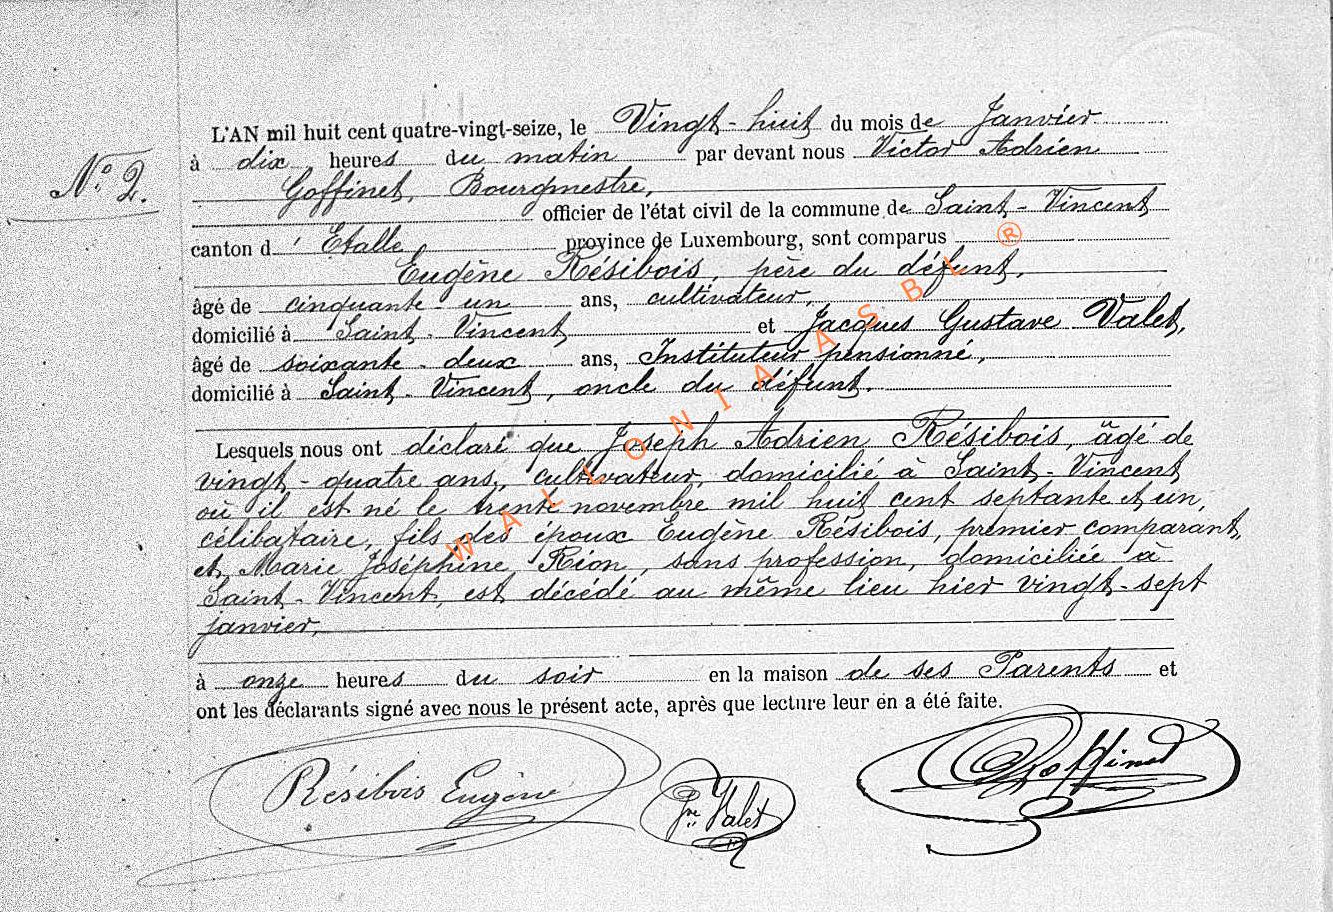 L'AN mil huit cent quatre-vingt-seize, le Vingt-huit du mois de Janvier
N.º 2.
à dix heures du matin par devant nous Victor Adrien
Goffinet, Bourgmestre,
officier de l'état civil de la commune de Saint-Vincent
canton d'Etalle province de Luxembourg, sont comparus
Eugène Résibois, père du défunt,
âgé de cinquante un ans, cultivateur,
domicilié à Saint-Vincent et Jacques Gustave Valet,
âgé de soixante-deux ans, Instituteur pensionné,
domicilié à Saint-Vincent, oncle du défunt.
Lesquels nous ont déclaré que Joseph Adrien Résibois, âgé de
vingt-quatre ans, cultivateur, domicilié à Saint-Vincent
où il est né le trente novembre mil huit cent septante et un,
célibataire, fils des époux Eugène Résibois, premier comparant,
et Marie Joséphine Rion, sans profession, domiciliée à
Saint-Vincent, est décédé au même lieu hier vingt-sept
janvier,
à onze heures du soir en la maison de ses Parents et
ont les déclarants signé avec nous le présent acte, après que lecture leur en a été faite.
Résibois Eugène Valet Goffinet
WALLONIA ASBL ®